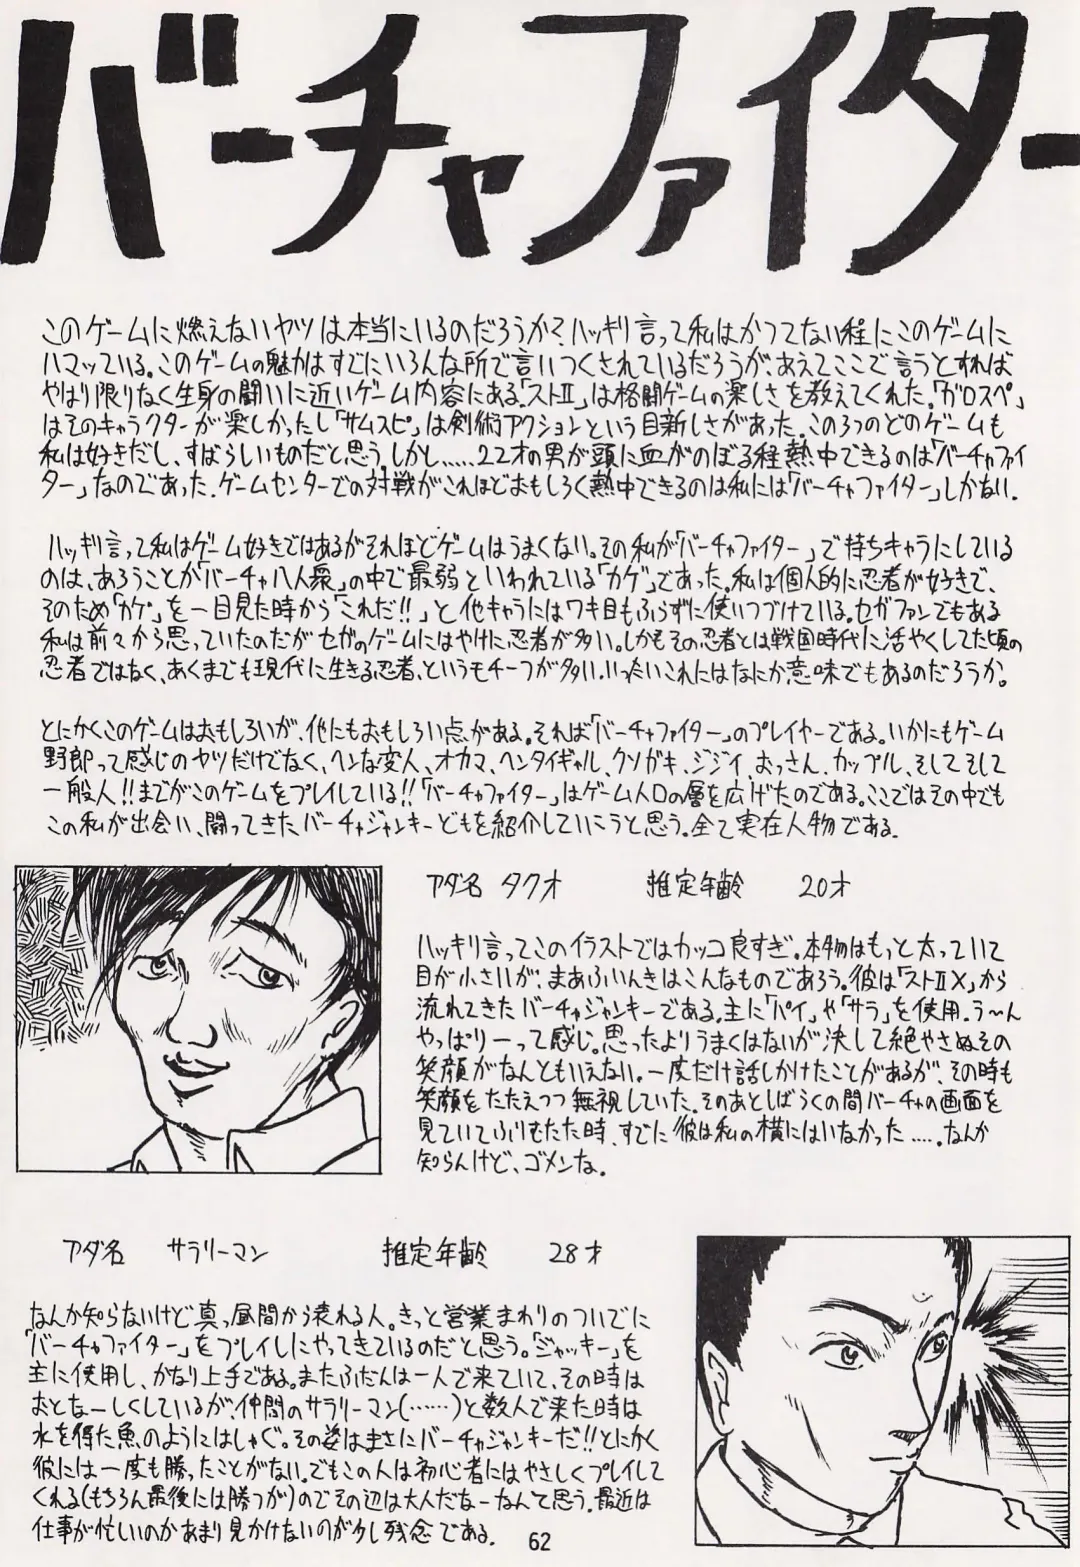 バーチャファイター
このゲームに燃えないヤツは本当にいるのだろうか？ハッキリ言って私はかつてない程にこのゲームに
ハマッている。このゲームの魅力はすでにいろんな所で言いつくされているだろうが、あえてここで言うとすれば
やはり限りなく生身の闘いに近いゲーム内容にある。「ストⅡ」は格闘ゲームの楽しさを教えてくれた。「ガロスペ」
はそのキャラクターが楽しかったし「サムスピ」は剣術アクションという目新しさがあった。この3つのどのゲームも
私は好きだし、すばらしいものだと思う。しかし……22才の男が頭に血がのぼる程熱中できるのは「バーチャファイ
ター」なのであった。ゲームセンターでの対戦がこれほどおもしろく熱中できるのは私には「バーチャファイター」しかない。
ハッキリ言って私はゲーム好きではあるがそれほどゲームはうまくない。その私が「バーチャファイター」で持ちキャラにしている
のは、あろうことか「バーチャ八人衆」の中で最弱といわれている「カゲ」であった。私は個人的に忍者が好きで、
そのため「カゲ」を一目見た時から「これだ!!」と他キャラにはワキ目もふらずに使いつづけている。セガファンでもある
私は前々から思っていたのだがセガのゲームにはやけに忍者が多い。しかもその忍者とは戦国時代に活やくしてた頃の
忍者ではなく、あくまでも現代に生きる忍者、というモチーフが多い。いったいこれにはなにか意味でもあるのだろうか。
とにかくこのゲームはおもしろいが、他にもおもしろい点がある。それは「バーチャファイター」のプレイヤーである。いかにもゲーム
野郎って感じのヤツだけでなく、ヘンな変人、オカマ、ヘンタイギャル、クソガキ、ジジイ、おっさん、カップル、そしてそして
一般人!!までがこのゲームをプレイしている!!「バーチャファイター」はゲーム人口の層を広げたのである。ここではその中でも
この私が出会い、闘ってきたバーチャジャンキーどもを紹介していこうと思う。全て実在人物である。
アダ名 タクオ 推定年齢 20才
ハッキリ言ってこのイラストではカッコ良すぎ。本物はもっと太っていて
目が小さいが、まあふいんきはこんなものであろう。彼は「ストⅡX」から
流れてきたバーチャジャンキーである。主に「パイ」や「サラ」を使用。う〜ん
やっぱりーって感じ。思ったよりうまくはないが決して絶やさぬその
笑顔がなんともいえない。一度だけ話しかけたことがあるが、その時も
笑顔をたたえつつ無視していた。そのあとしばらくの間バーチャの画面を
見ていてふりむいた時、すでに彼は私の横にはいなかった……。なんか
知らんけど、ゴメンな。
アダ名 サラリーマン 推定年齢 28才
なんか知らないけど真っ昼間から来れる人。きっと営業まわりのついでに
「バーチャファイター」をプレイしにやってきているのだと思う。「ジャッキー」を
主に使用し、かなり上手である。またふだんは一人で来ていて、その時は
おとなーしくしているが、仲間のサラリーマン(……)と数人で来た時は
水を得た魚のようにはしゃぐ。その姿はまさにバーチャジャンキーだ!!とにかく
彼には一度も勝ったことがない。でもこの人は初心者にはやさしくプレイして
くれる(もちろん最後には勝つが)のでその辺は大人だなーなんて思う。最近は
仕事が忙しいのかあまり見かけないのが少し残念である。
62